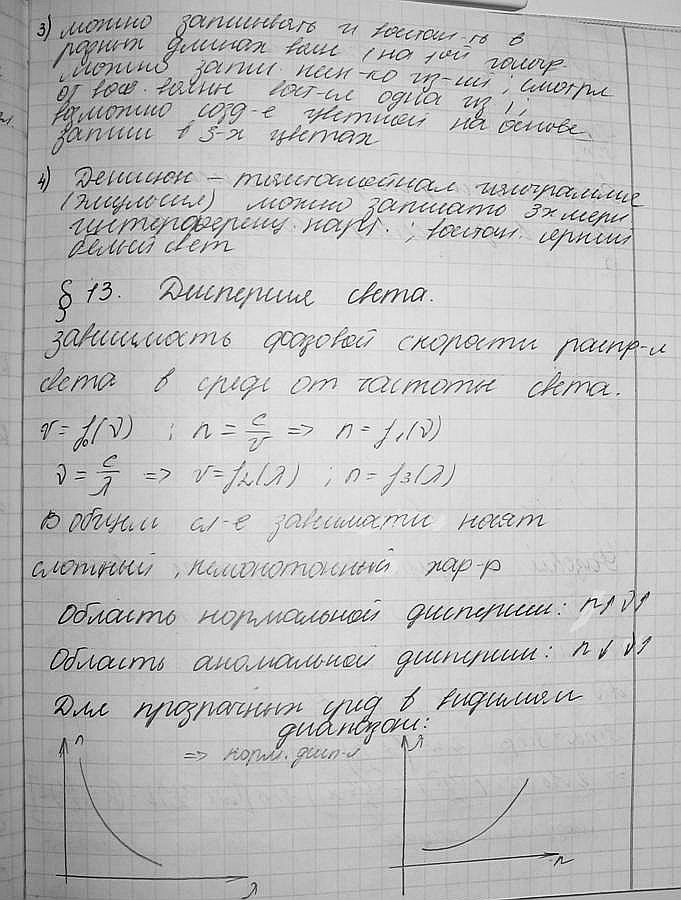 3) можно записывать и восстан-ть в
разных длинах волн (на одной гологр.
можно запис. неск-ко из-ий; смотря
от восст. волны вост-ся одна из);
возможно созд-е цветной на основе
записи в 3-х цветах
4) Денисюк – толстослойная голограмма
(эмульсия) можно записать 3х мерн
интерференц. карт.; восстан. яркий
белый свет
§ 13. Дисперсия света.
зависимость фазовой скорости распр-я
света в среде от частоты света.
v = f₀(ν) ; n = c/v => n = f₁(ν)
ν = c/λ => v = f₂(λ) ; n = f₃(λ)
В общем сл-е зависимости носят
сложный, немонотонный хар-р
Область нормальной дисперсии: n↑ ν↑
Область аномальной дисперсии: n↓ ν↑
Для прозрачных сред в видимом
диапазон:
n => норм. дисп-я
λ
n